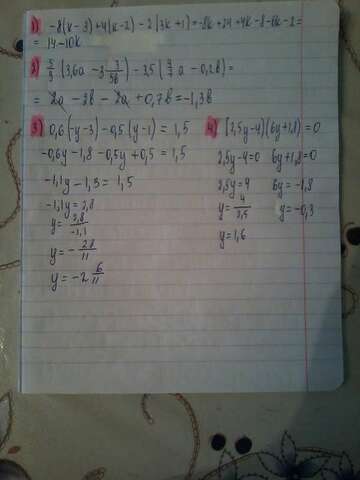 1) -8(k-3)+4(k-2)-2(3k+1)=-8k+24+4k-8-6k-2=
= 14-10k
2) 5/9 (3,6a - 3 3/5 b) - 3,5 (4/7 a - 0,2b) =
= 2a - 2b - 2a + 0,7b = -1,3b
3) 0,6(-y-3)-0,5(y-1) = 1,5
-0,6y-1,8-0,5y+0,5 = 1,5
-1,1y-1,3 = 1,5
-1,1y = 2,8
y = 2,8/-1,1
y = - 28/11
y = -2 6/11
4) (2,5y-4)(6y+1,8)=0
2,5y-4=0 6y+1,8=0
2,5y=4 6y=-1,8
y = 4/2,5 y=-0,3
y=1,6